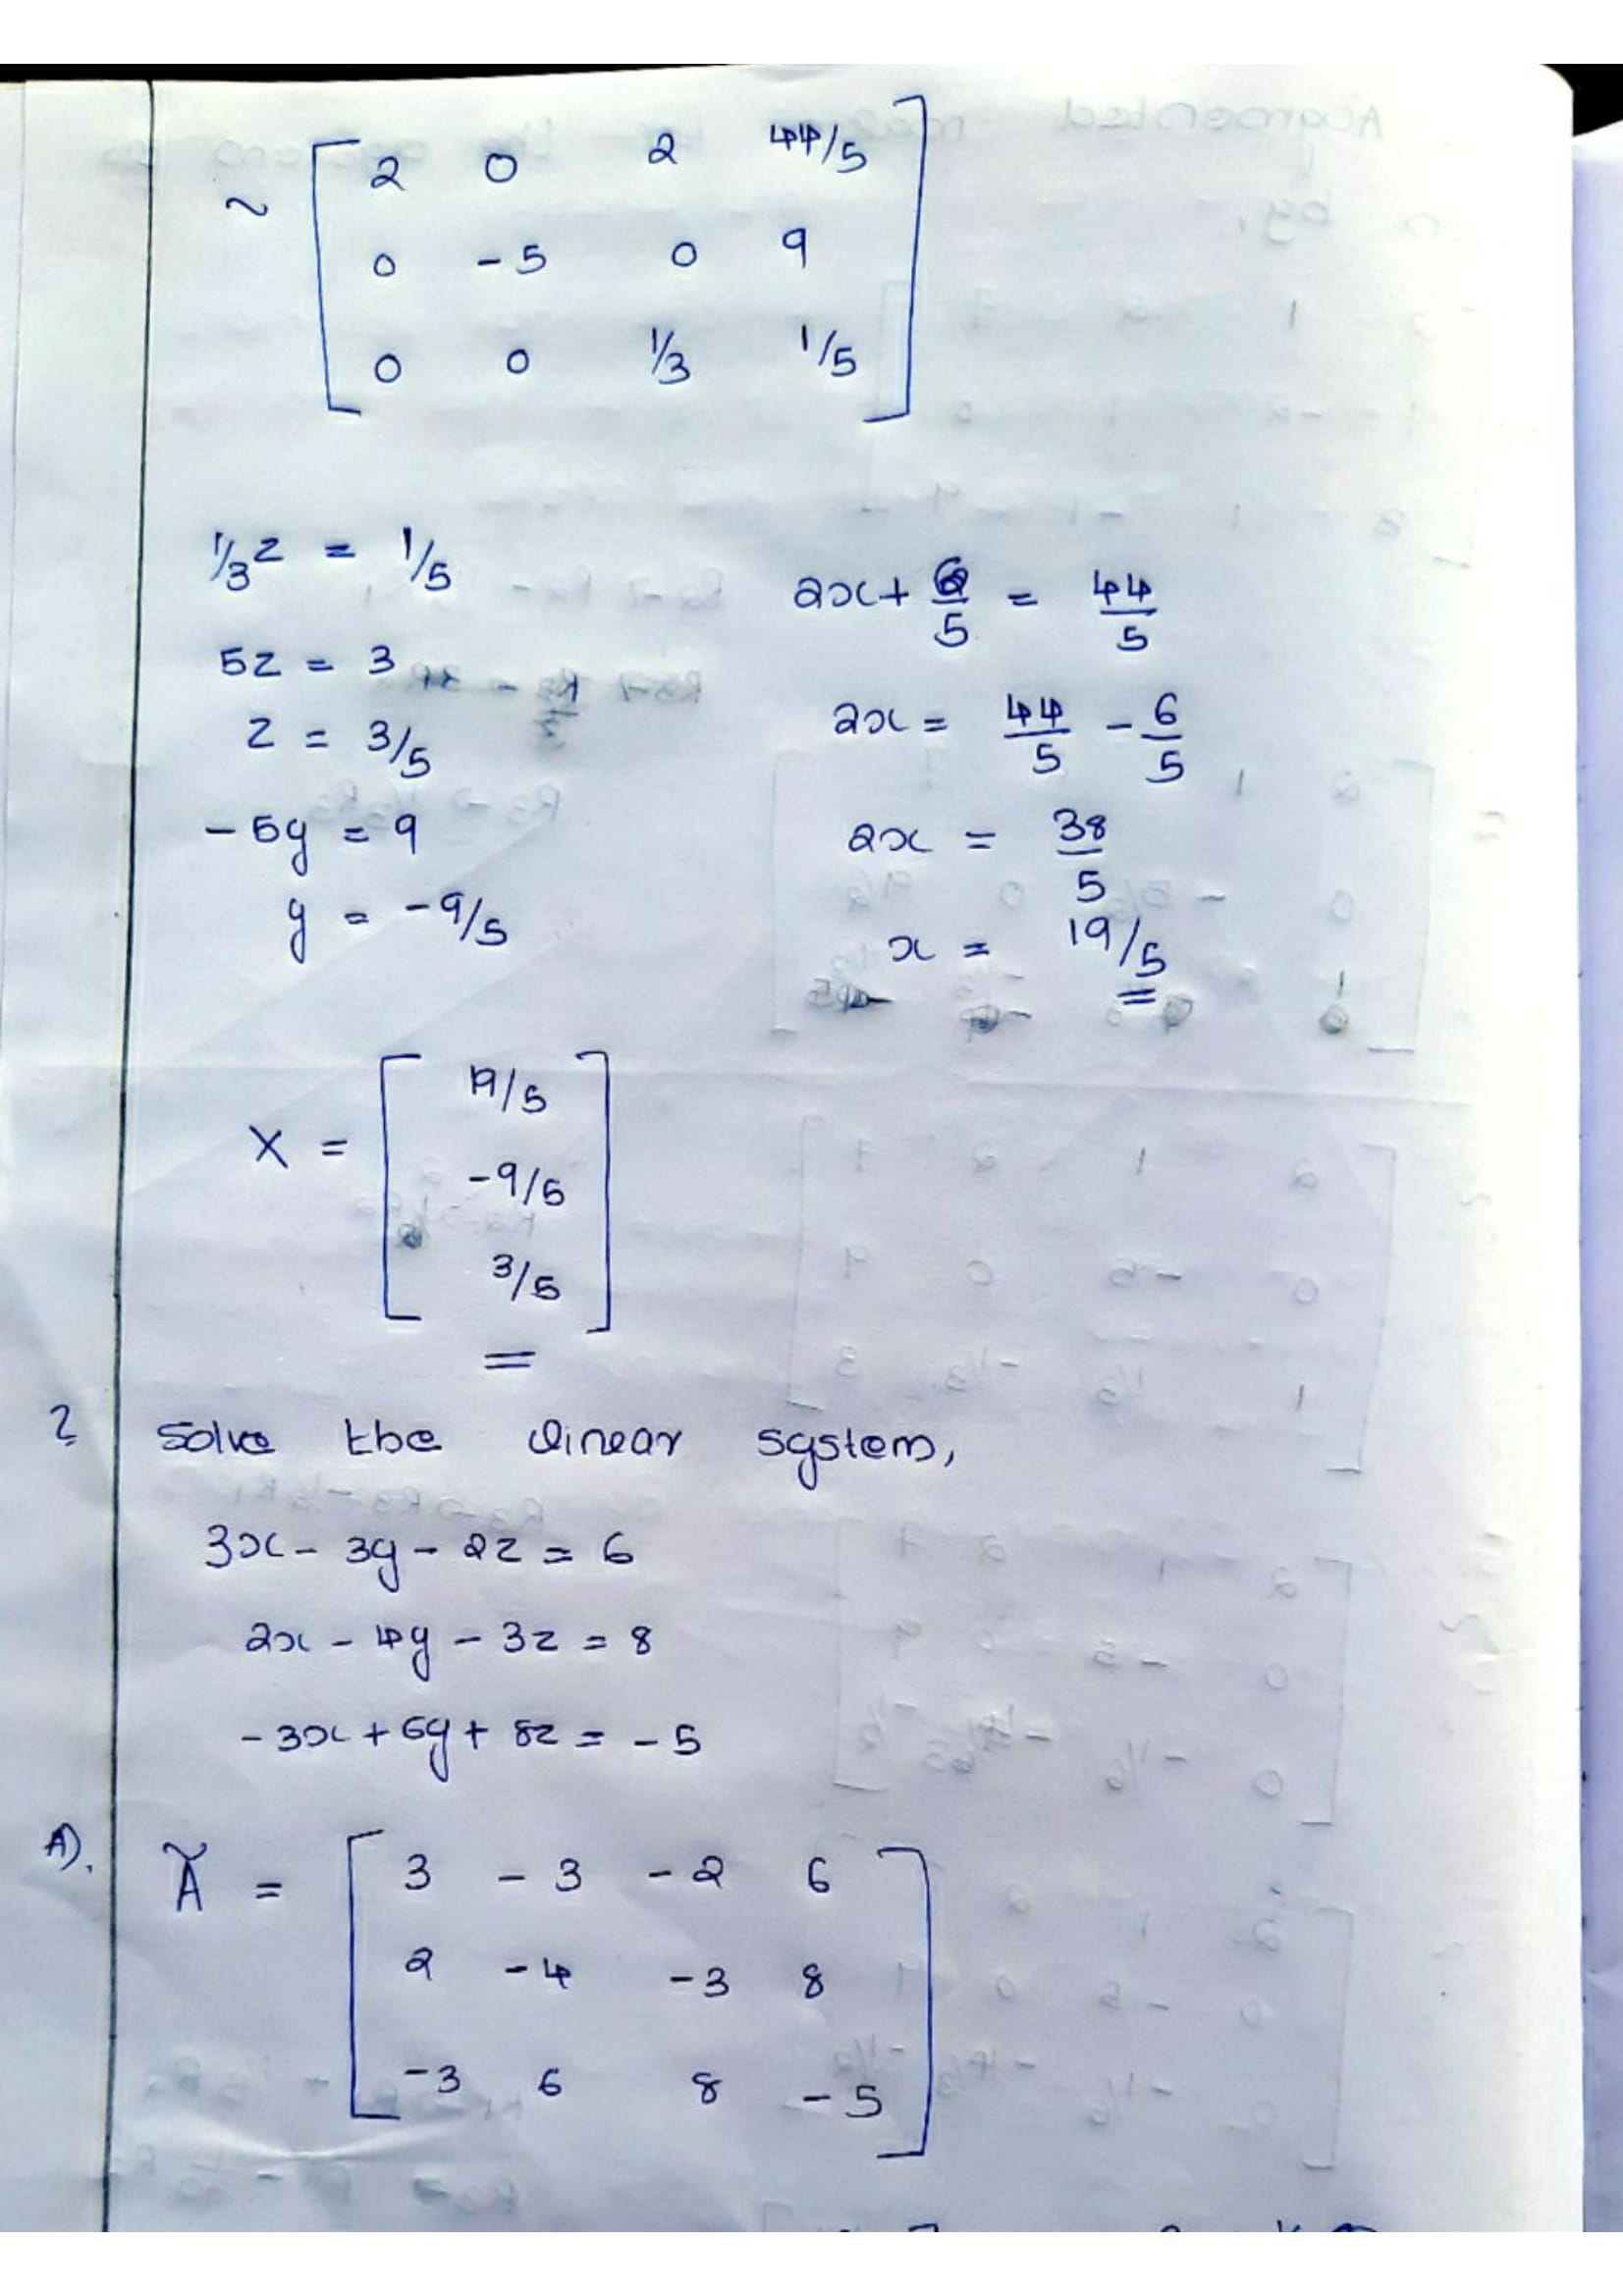 ~ [ 2 0 2 44/5
0 -5 0 9
0 0 1/3 1/5 ]
1/3 z = 1/5
5z = 3
z = 3/5
-5y = 9
y = -9/5
2x + 6/5 = 44/5
2x = 44/5 - 6/5
2x = 38/5
x = 19/5
X = [ 19/5
-9/5
3/5 ]
? Solve the linear system,
3x - 3y - 2z = 6
2x - 4y - 3z = 8
-3x + 6y + 8z = -5
A). Ã = [ 3 -3 -2 6
2 -4 -3 8
-3 6 8 -5 ]